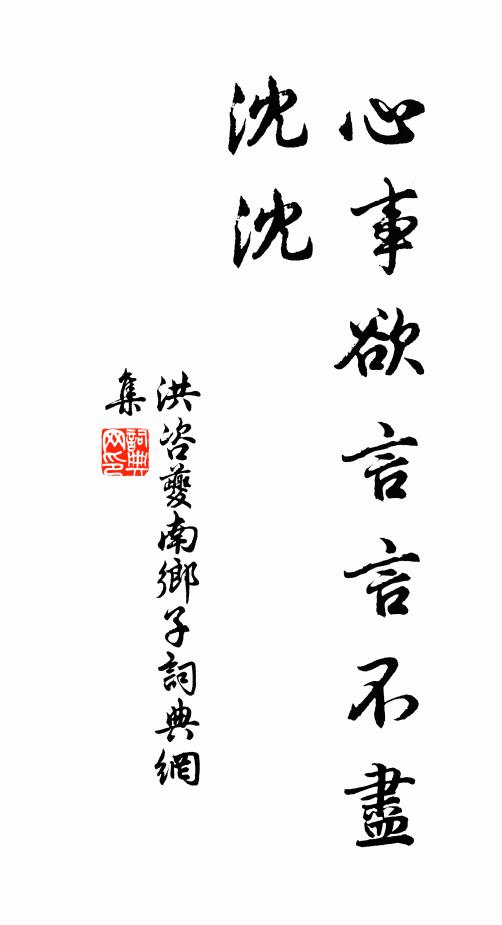 心事欲言言不盡
沈沈
洪咨夔南鄉子詞典網
集
詞典
网印